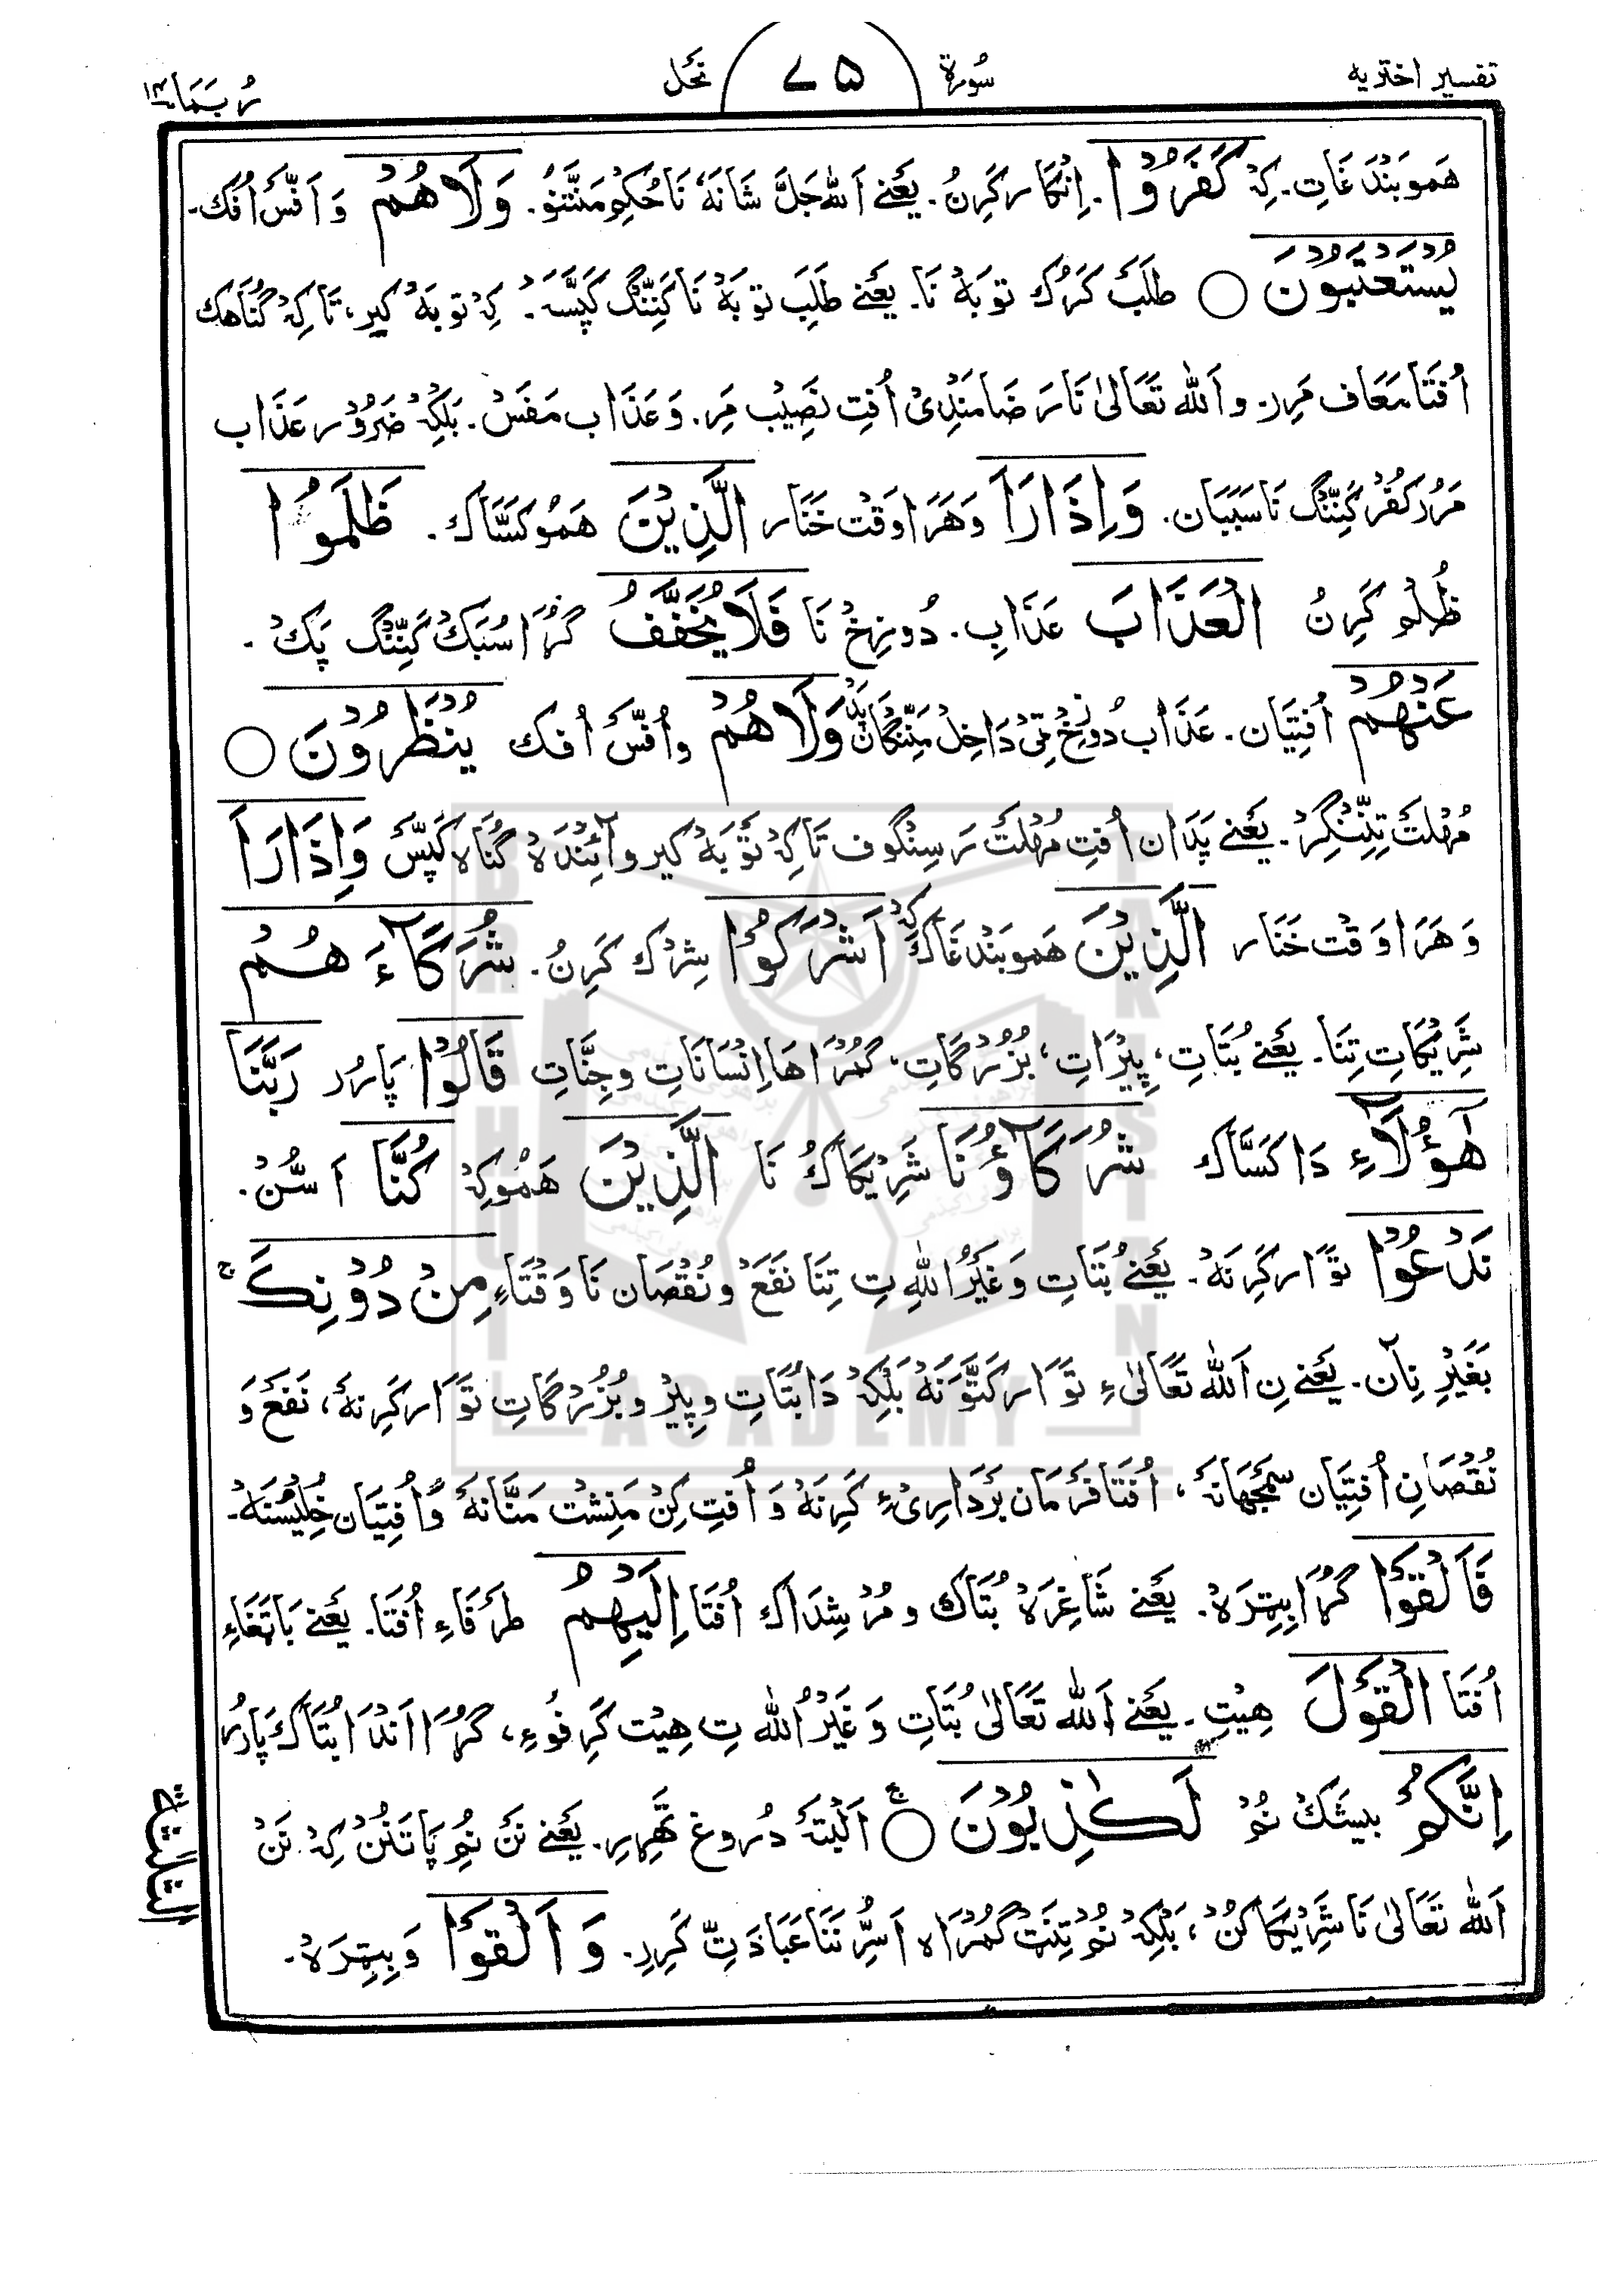 تفسیر اختریه
سُورة ۷۵ نَحَل
رُبَمَا ۱۴
هَموبَندَغَاتِ۔ کِہْ كَفَرُوْا۔ اِنْکَار کَرِنُ۔ یعَنے اَللہ جَلَّ شَانَہٗ نَا حُکمِ مَنَّتَنوُ۔ وَلَا هُمْ وَ اَفَسّ اُفک۔
يُسْتَعْتَبُوْنَ ○ طلَبْ کَرُک توبَہْ نَا۔ یعَنے طَلَبِ توبَہْ نَا کَنِنِّگ کَپَسَّہ۔ کِہْ توبَہْ کیر، تَاکِہْ گُنَاھک
اُفتَا مَعَاف مَرِر۔ و اَللہ تَعَالیٰ نَا رَضَامَندِیْ اُفتِ نَصِیْب مَرِ۔ وَ عَذَاب مَفَسْ۔ بَلکِہْ ضَرُوْر عَذَاب
مَرُر کُفر کَنِنِّگ نَا سَبَبَان۔ وَاِذَا رَاَ وَ ھَرَا وَقت خَنَار الَّذِيْنَ ھَمُوکَسَّاک۔ ظَلَمُوا
ظُلُم کَرِنُ الْعَذَابَ عَذَابِ۔ دُوزِخْ نَا فَلَا يُخَفَّفُ گُڑَا سُبَک کَنِنِّگ پَکْ۔
عَنْهُمْ اُفتِیَان۔ عَذَاب دُوزِخْ ٹِی دَاخِل مَنِنِّگان پَدْ وَلَا هُمْ و اُفَسّ اُفک يُنْظَرُوْنَ ○
مُہْلَت تِنِنِّگِرْ۔ یعَنے پَدَان اُفتِ مُہْلَت رَسِنگوف تَاکِہْ توبَہْ کیر و آئِنْدَہْ گُنَاہ کَپَسّ وَاِذَا رَاَ
وَ ھَرَا وَقْت خَنَار الَّذِيْنَ ھَموبَندَغَاک کِہْ اَشْرَكُوْا شِرْک کَرِنُ۔ شُرَكَآءَ هُمْ
شَرِیْکَاتِ تِنَا۔ یعَنے بُتَاتِ، پِیْرَاتِ، بُزُرْگاتِ، گُمْرَاھَا اِنْسَانَاتِ و جِنَّاتِ قَالُوْا پَارُر رَبَّنَا
هٰٓؤُلَآءِ دَاکَسَّاک شُرَكَآؤُنَا شَرِیْکَاک نَا الَّذِيْنَ ھَمُوکِہْ كُنَّا اَسُّنْ۔
نَدْعُوْا تَوَار کَرِنَہْ۔ یعَنے بُتَاتِ وَ غَیْرُاللہِ تِ تِنَا نَفَعْ و نُقْصَان نَا وَقْتَاءِ مِنْ دُوْنِكَ ۚ
بَغَیْرِ نِآن۔ یعَنے نِ اَللہ تَعَالیٰ ءِ تَوَار کَتَوَنَہْ بَلکِہْ دَا بُتَاتِ و پِیْر و بُزُرْگاتِ تَوَار کَرِنَہْ، نَفَعْ وَ
نُقْصَانِ اُفتِیَان سَمْجھَانَہ، اُفتَا فَرْمَان بَرْدَارِیْ ءِ کَرِنَہْ وَ اُفتِ کِنْ مَنِّشت مَنَّانَہْ و اُفتِیَان خُلِیْسُنَہْ۔
فَاَلْقَوْا گُڑَا بِٹِرَہْ۔ یعَنے شَاغِرَہْ بُتَاک و مُرْشِدَاک اُفتَا اِلَيْهِمْ طَرَفَاءِ اُفتَا۔ یعَنے بَاتَغَاءِ
اُفتَا الْقَوْلَ ھِیْتِ۔ یعَنے اَللہ تَعَالیٰ بُتَاتِ وَ غَیْرُاللہ تِ ھِیْت کَرِفوُءِ، گُڑَا اَنْدَا بُتَاک پَارُر
اِنَّكُمْ بیشَکْ نُمْ لَكٰذِبُوْنَ ○ۚ اَلْبَتَّہْ دُروغ تَھِرِر۔ یعَنے نَنْ نُمِ پَاتَنُنْ کِہْ نَنْ
اَللہ تَعَالیٰ نَا شَرِیْکَا کُنْ، بَلکِہْ نُمْ تِنَتْ گُمْرَاہ اَسُّرِ نَنَا عَبَادَتِّ کَرِر۔ وَاَلْقَوْا وَ بِٹِرَہْ۔
الثلثۃ